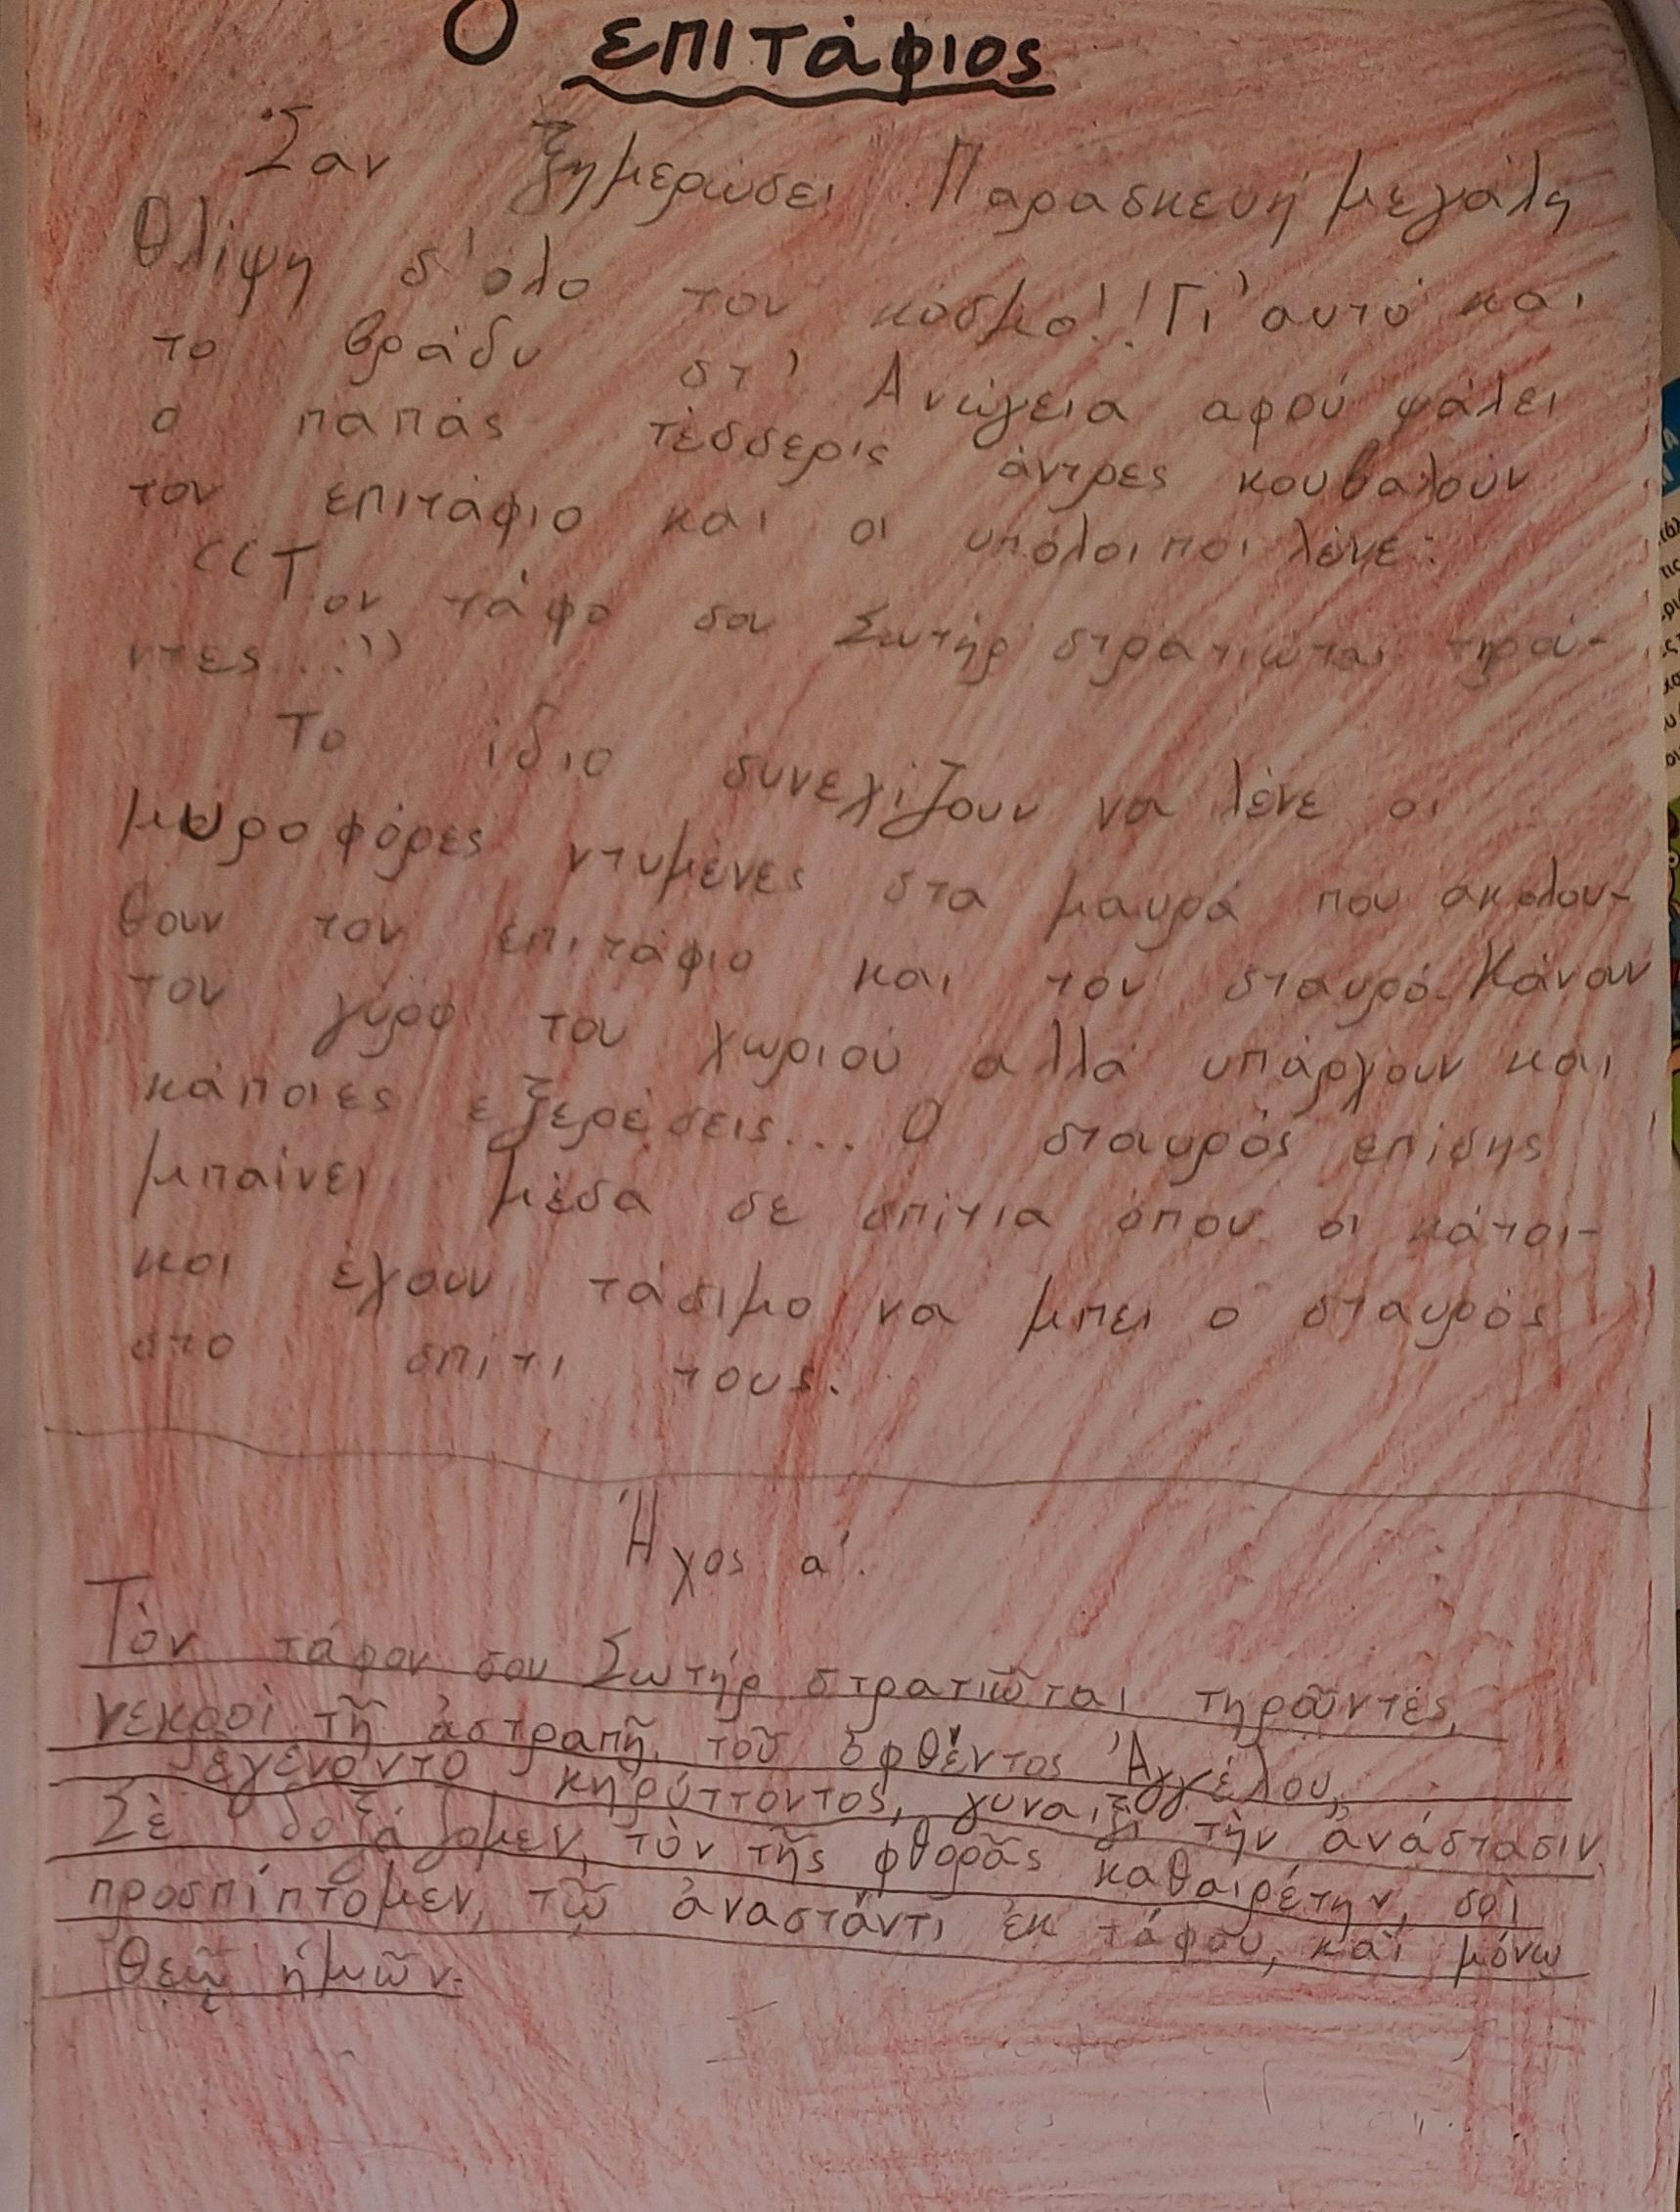 Ο επιτάφιος
Σαν ξημερώσει Παρασκευή μεγάλη
θλίψη σ' όλο τον κόσμο!! Γι' αυτό και
το βράδυ στ' Ανώγεια αφού ψάλει
ο παπάς τέσσερις άντρες κουβαλούν
τον επιτάφιο και οι υπόλοιποι λένε:
«Τον τάφο σου Σωτήρ στρατιώται τηρού-
ντες...»
Το ίδιο συνεχίζουν να λένε οι
μυροφόρες ντυμένες στα μαυρά που ακολου-
θουν τον επιτάφιο και τον σταυρό. Κάνουν
τον γύρο του χωριού αλλά υπάρχουν και
κάποιες εξερέσεις... Ο σταυρός επίσης
μπαίνει μέσα σε σπίτια όπου οι κάτοι-
κοι έχουν τάσιμο να μπει ο σταυρός
στο σπίτι τους.
Ήχος α'.
Τὸν τάφον σου Σωτήρ στρατιῶται τηροῦντες,
νεκροὶ τῇ ἀστραπῇ, τοῦ ὀφθέντος Ἀγγέλου,
ἐγένοντο κηρύττοντος, γυναιξὶ τὴν ἀνάστασιν.
Σὲ δοξάζομεν, τὸν τῆς φθορᾶς καθαιρέτην, σοὶ
προσπίπτομεν, τῷ ἀναστάντι ἐκ τάφου, καὶ μόνῳ
Θεῷ ἡμῶν.